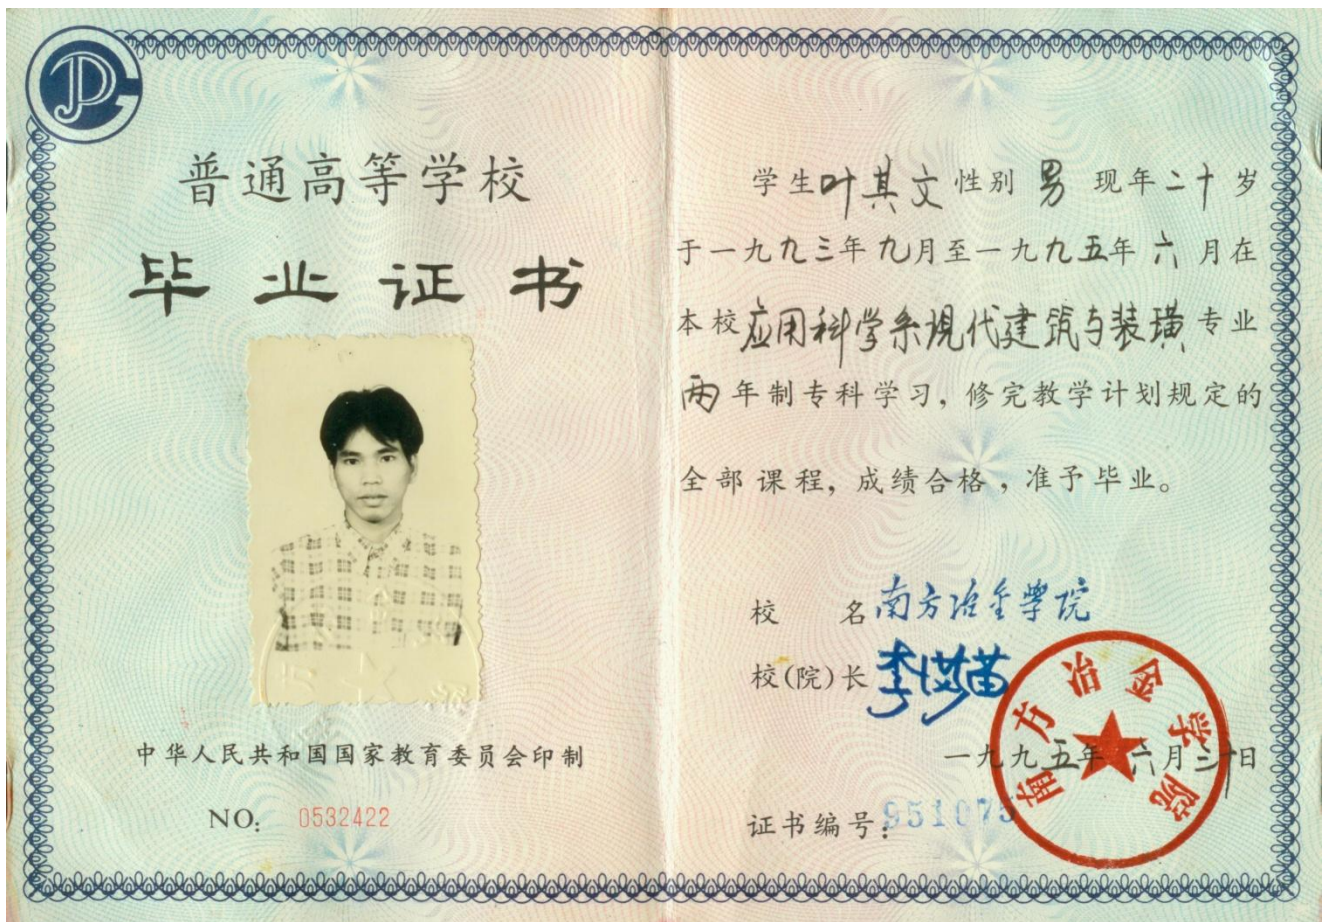 普通高等学校
毕业证书
中华人民共和国国家教育委员会印制
NO: 0532422
学生叶其文性别 男 现年二十岁
于一九九三年九月至一九九五年六月在
本校应用科学系现代建筑与装璜专业
两年制专科学习，修完教学计划规定的
全部课程，成绩合格，准予毕业。
校 名 南方冶金學院
校(院)长
一九九五年 六月三十日
证书编号：951075
南方冶金学院